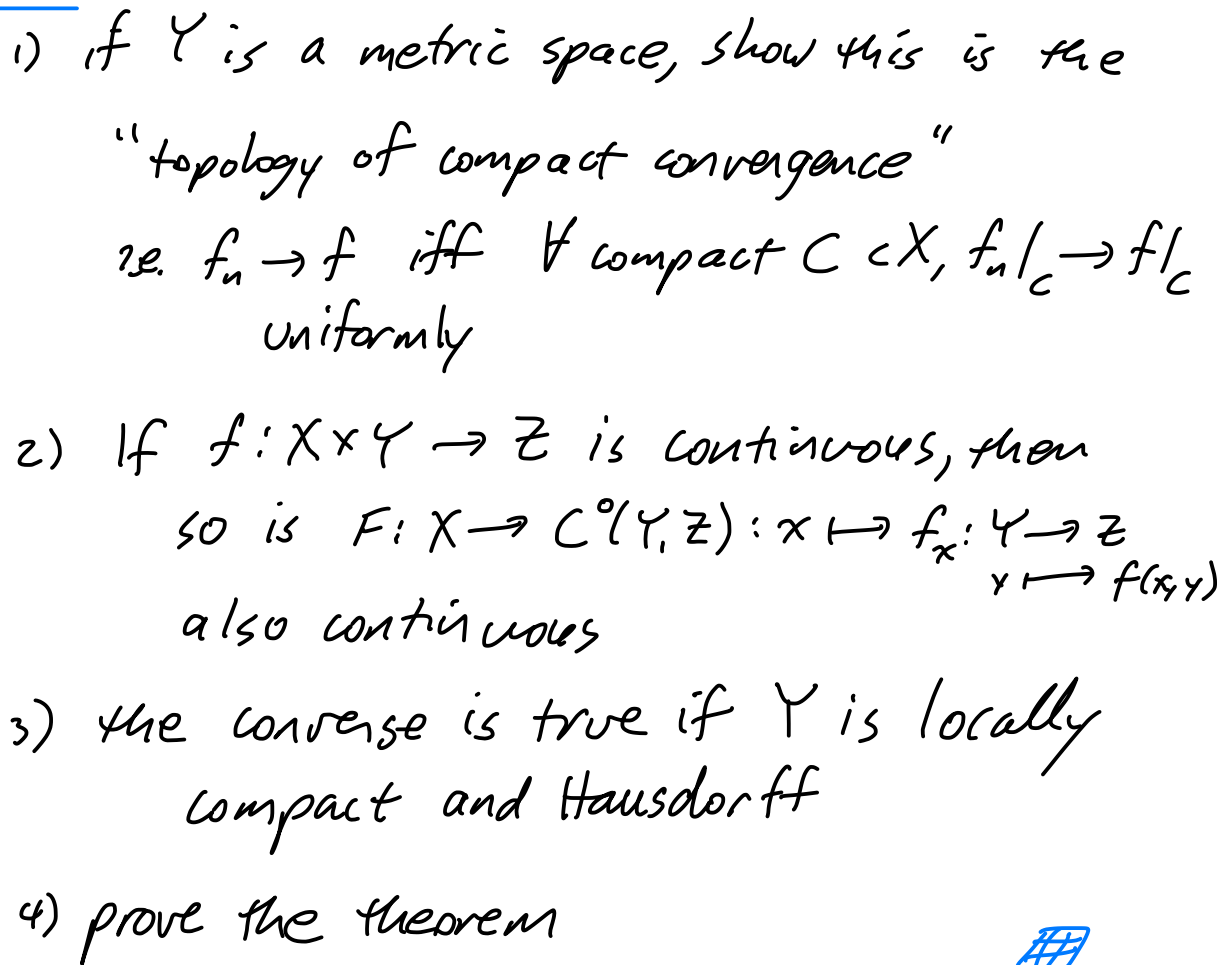 1) if Y is a metric space, show this is the
"topology of compact convergence"
ie. fₙ → f iff ∀ compact C ⊂ X, fₙ|_C → f|_C
uniformly
2) If f : X × Y → Z is continuous, then
so is F : X → C⁰(Y, Z) : x ↦ fₓ : Y → Z
y ↦ f(x,y)
also continuous
3) the converse is true if Y is locally
compact and Hausdorff
4) prove the theorem